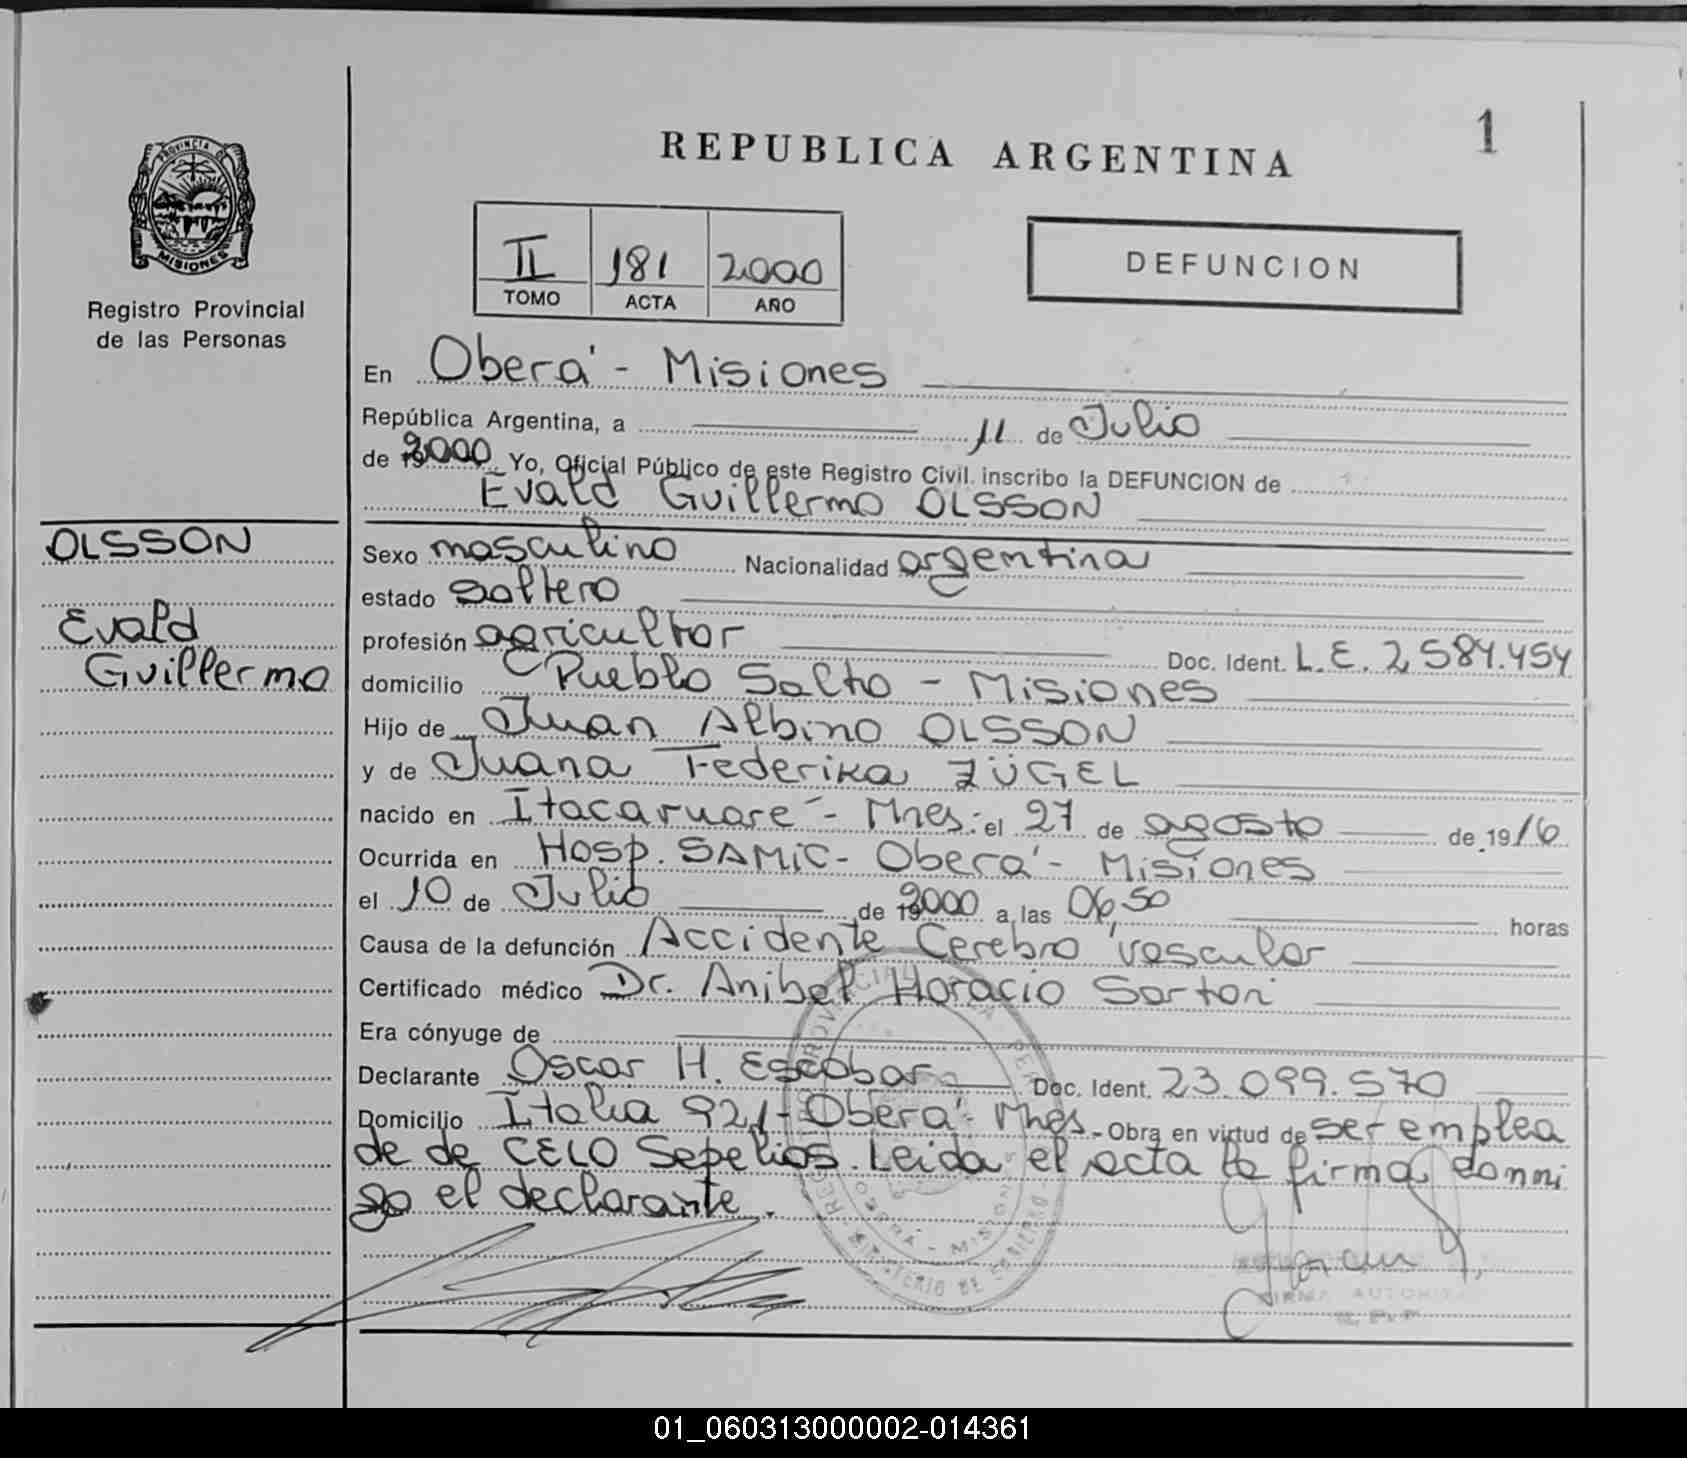 1
REPUBLICA ARGENTINA
PROVINCIA DE
MISIONES
Registro Provincial
de las Personas
II 181 2000
TOMO ACTA AÑO
DEFUNCION
En Oberá - Misiones
República Argentina, a 11 de Julio
de 2000 Yo, Oficial Público de este Registro Civil. inscribo la DEFUNCION de
Evald Guillermo OLSSON
OLSSON
Evald
Guillermo
Sexo masculino Nacionalidad argentina
estado soltero
profesión agricultor Doc. Ident. L.E. 2.584.454
domicilio Pueblo Salto - Misiones
Hijo de Juan Albino OLSSON
y de Juana Federika ZÜGEL
nacido en Itacaruaré - Mnes. el 27 de agosto de 1916
Ocurrida en Hosp. SAMIC - Oberá - Misiones
el 10 de Julio de 2000 a las 06,50 horas
Causa de la defunción Accidente Cerebro vascular
Certificado médico Dr. Anibal Horacio Sartori
Era cónyuge de
Declarante Oscar H. Escobar Doc. Ident. 23.099.570
Domicilio Italia 921 - Oberá - Mnes. - Obra en virtud de ser emplea
do de CELO Sepelios. Leida el acta la firma conmi
go el declarante.
OBERÁ - MISIONES
MINISTERIO DE GOBIERNO
FIRMA AUTORIZADA
R. P. P.
01_060313000002-014361